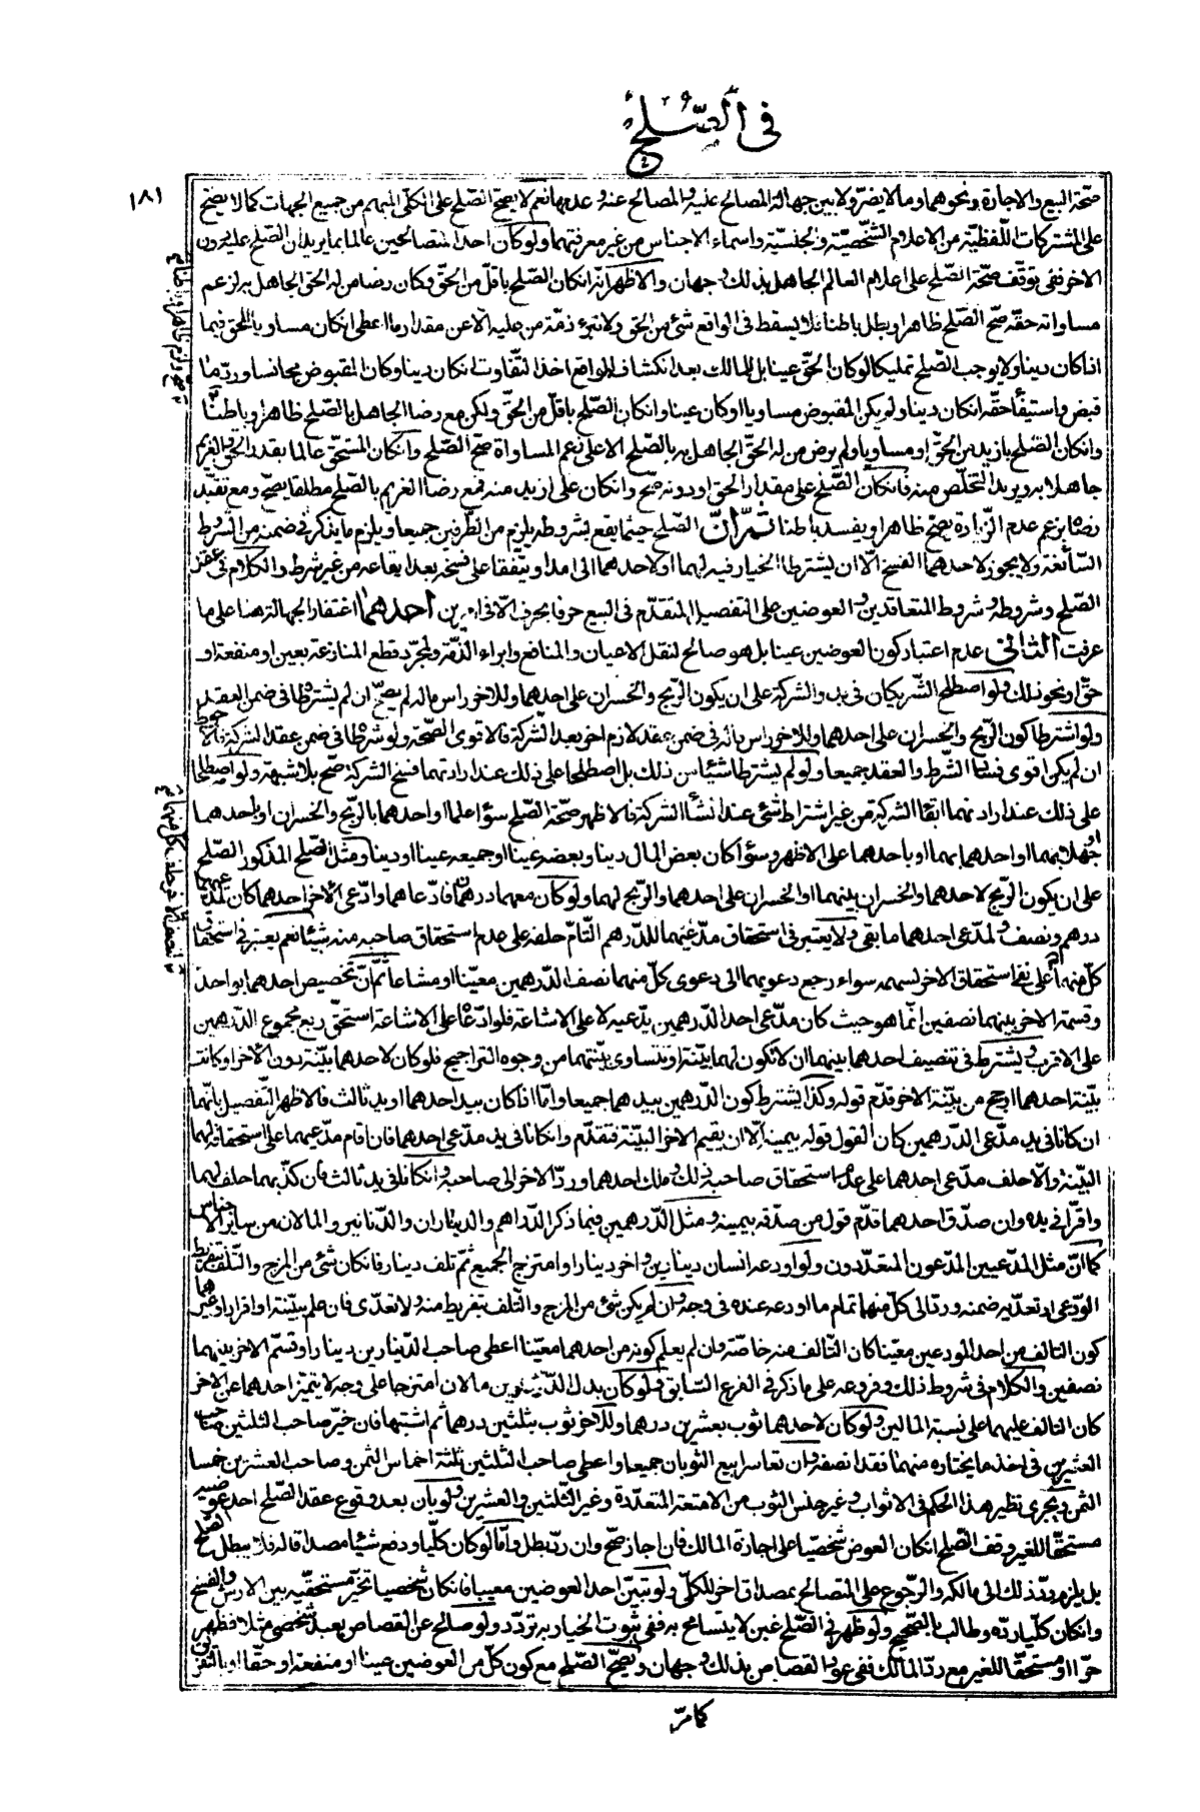 في الصّلح
١٨١
صحّة البيع والاجارة ونحوهما وما لا يضرّ ولا بين جهالة المصالح عليه والمصالح عنه وعدمها نعم لا يصحّ الصّلح على الكلّى المبهم من جميع الجهات كما لا يصحّ
على المشتركات اللّفظيّة من الاعلام الشّخصيّة والجنسيّة واسماء الاجناس من غير معرفتهما ولو كان احد المتصالحين عالما بما يريدان الصّلح عليه دون
الاخر ففى توقّف صحّة الصّلح على اعلام العالم الجاهل بذلك وجهان والاظهر انّه ان كان الصّلح باقلّ من الحقّ وكان رضا من له الحق الجاهل به لزعم
مساواته حقّه صحّ الصّلح ظاهرا وبطل باطنا فلا يسقط فى الواقع شئ من الحق ولا تبرء ذمّة من عليه الا عن مقدار ما اعطى ان كان مساويا للحق فيما
اذا كان دينا ولا يوجب الصّلح تمليكا لو كان الحقّ عينا بل للمالك بعد انكشاف الواقع اخذ التّفاوت ان كان دينا وكان المقبوض مجانسا وردّ ما
قبض واستيفاء حقّه ان كان دينا ولم يكن المقبوض مساويا او كان عينا وان كان الصّلح باقلّ من الحقّ ولكن مع رضا الجاهل بالصّلح ظاهرا وباطنا
وان كان الصّلح بازيد من الحقّ او مساويا ولم يرض من له الحقّ الجاهل به بالصّلح الا على زعم المساواة صحّ الصّلح وان كان المستحقّ عالما بقدر الحق والغريم
جاهلا به ويريد التخلّص منه فان كان الصّلح على مقدار الحق او دونه صحّ وان كان على ازيد منه فمع رضا الغريم بالصّلح مطلقا يصحّ ومع تقيد
رضاه بزعم عدم الزّيادة يصحّ ظاهرا ويفسد باطنا ثمّ انّ الصّلح حيثما يقع بشروطه يلزم من الطّرفين جميعا ويلزم ما يذكر فى ضمنه من الشّروط
السّائغة ولا يجوز لاحدهما الفسخ الّا ان يشترطا الخيار فيه لهما او لاحدهما الى امد او يتّفقا على فسخه بعد ايقاعه من غير شرط والكلام فى عقد
الصّلح وشروطه وشروط المتعاقدين والعوضين على التفصيل المتقدّم فى البيع حرفا بحرف الّا فى امرين احدهما اغتفار الجهالة هنا على ما
عرفت الثّانى عدم اعتبار كون العوضين عينا بل هو صالح لنقل الاعيان والمنافع وابراء الذمّة ولمجرّد قطع المنازعة بعين او منفعة او
حقّ او نحو ذلك ولو اصطلح الشّريكان فى بدو الشركة على ان يكون الرّبح والخسران على احدهما وللاخر راس ماله لم يصحّ ان لم يشترطا فى ضمن العقد
ولو اشترطا كون الرّبح والخسران على احدهما وللاخر راس ماله فى ضمن عقد لازم اخر بعد الشّركة فالاقوى الصّحّة ولو شرطا فى ضمن عقد الشركة فالاحوط
ان لم يكن اقوى فساد الشّرط والعقد جميعا ولو لم يشترطا شيئا من ذلك بل اصطلحا على ذلك عند ارادتهما فسخ الشركة صحّ بلا شبهة ولو اصطلحا
على ذلك عند ارادتهما ابقاء الشركة من غير اشتراط شئ عند انشاء الشركة فالاظهر صحّة الصّلح سواء علما او احدهما بالرّبح والخسران او باحدهما
او جهلا بهما او احدهما بهما او باحدهما على الاظهر وسواء كان بعض المال دينا وبعضه عينا او جميعه عينا او دينا ومثل الصّلح المذكور الصّلح
على ان يكون الرّبح لاحدهما والخسران بينهما او الخسران على احدهما والرّبح لهما ولو كان معهما درهمان فادّعاهما احدهما وادّعى الاخر احدهما كان لمدّعيهما
درهم ونصف ولمدّعى احدهما ما بقى ولا يعتبر فى استحقاق مدّعيهما للدّرهم التّامّ حلفه على عدم استحقاق صاحبه منه شيئا نعم يعتبر فى استحقاق
كلّ منهما على نفى استحقاق الاخر لسهمه سواء رجع دعويهما الى دعوى كلّ منهما نصف الدّرهمين معيّنا او مشاعا ثمّ انّ تخصيص احدهما بواحد
وقسمة الاخر بينهما نصفين انّما هو حيث كان مدّعى احد الدّرهمين يدّعيه لا على الاشاعة فلو ادّعاه على الاشاعة استحقّ ربع مجموع الدّرهمين
على الاقرب ويشترط فى تنصيف احدهما بينهما ان لا تكون لهما بيّنة او تتساوى بيّنتهما من وجوه التراجيح فلو كان لاحدهما بيّنة دون الاخر او كانت
بيّنة احدهما ارجح من بيّنة الاخر قدّم قوله وكذا يشترط كون الدّرهمين بيدهما جميعا وامّا اذا كان بيد احدهما او بيد ثالث فالاظهر التّفصيل بانّهما
ان كانا فى يد مدّعى الدّرهمين كان القول قوله بيمينه الّا ان يقيم الاخر البيّنة فتقدّم وان كانا فى يد مدّعى احدهما فان اقام مدّعيهما على استحقاقه لهما
البيّنة والّا حلف مدّعى احدهما على عدم استحقاق صاحبه ذلك وملك احدهما وردّ الاخر الى صاحبه وان كانا فى يد ثالث فان كذّبهما حلف لهما
واقرّا فى يده وان صدّق احدهما قدّم قول من صدّقه بيمينه ومثل الدّرهمين فيما ذكر الدّراهم والديناران والدّنانير والمالان من سائر الاجناس
كما انّ مثل المدّعيين المدّعون المتعدّدون ولو اودعه انسان دينارين واخر دينارا وامتزج الجميع ثمّ تلف دينار فان كان شئ من المزج والتّلف بتفريط
الودعى او تعدّيه ضمنه وردّ الى كلّ منهما تمام ما اودعه عنده فى وجه وان لم يكن شئ من المزج والتّلف بتفريط منه ولا تعدّى فان علم ببيّنة او اقرار او غيرهما
كون التالف من احد المودعين معيّنا كان التّالف منه خاصّة وان لم يعلم كونه من احدهما معيّنا اعطى صاحب الدّينارين دينارا وقسّم الاخر بينهما
نصفين والكلام فى شروط ذلك وفروعه على ما ذكر فى الفرع السّابق ولو كان بدل الدّينارين مالان امتزجا على وجه لا يتميّز احدهما عن الاخر
كان التالف عليهما على نسبة المالين ولو كان لاحدهما ثوب بعشرين درهما وللاخر ثوب بثلثين درهما ثم اشتبها فان خيّر صاحب الثلثين صاحب
العشرين فى اخذ ما يختاره منهما فقد انصفه وان تعاسرا بيع الثوبان جميعا واعطى صاحب الثلثين ثلثة اخماس الثمن وصاحب العشرين خمسا
الثمن ويجرى نظير هذا الحكم فى الاثواب وغير جنس الثوب من الامتعة المتعدّدة وغير الثّلثين والعشرين ولو بان بعد وقوع عقد الصّلح احد عوضيه
مستحقّا للغير وقف الصّلح ان كان العوض شخصيّا على اجازة المالك فان اجاز صحّ وان ردّ بطل وامّا لو كان كلّيّا ودفع شيئا مصداقا له فلا يبطل الصّلح
بل يلزم ردّ ذلك الى مالكه والرّجوع على المتصالح بمصداق اخر للكلّى ولو تبيّن احد العوضين معيبا فان كان شخصيا تخيّر مستحقّيه بين الارش والفسخ
وان كان كلّيا ردّه وطالب بالصّحيح ولو ظهر فى الصّلح غبن لا يتسامح به ففى ثبوت الخيار به تردّد ولو صالح عن القصاص بعبد شخصى مثلا فظهر
حرّا او مستحقّا للغير مع ردّ المالك ففى عود القصاص بذلك وجهان ويصحّ الصّلح مع كون كلّ من العوضين عينا او منفعة او حقّا او بالتّفريق
كما مرّ